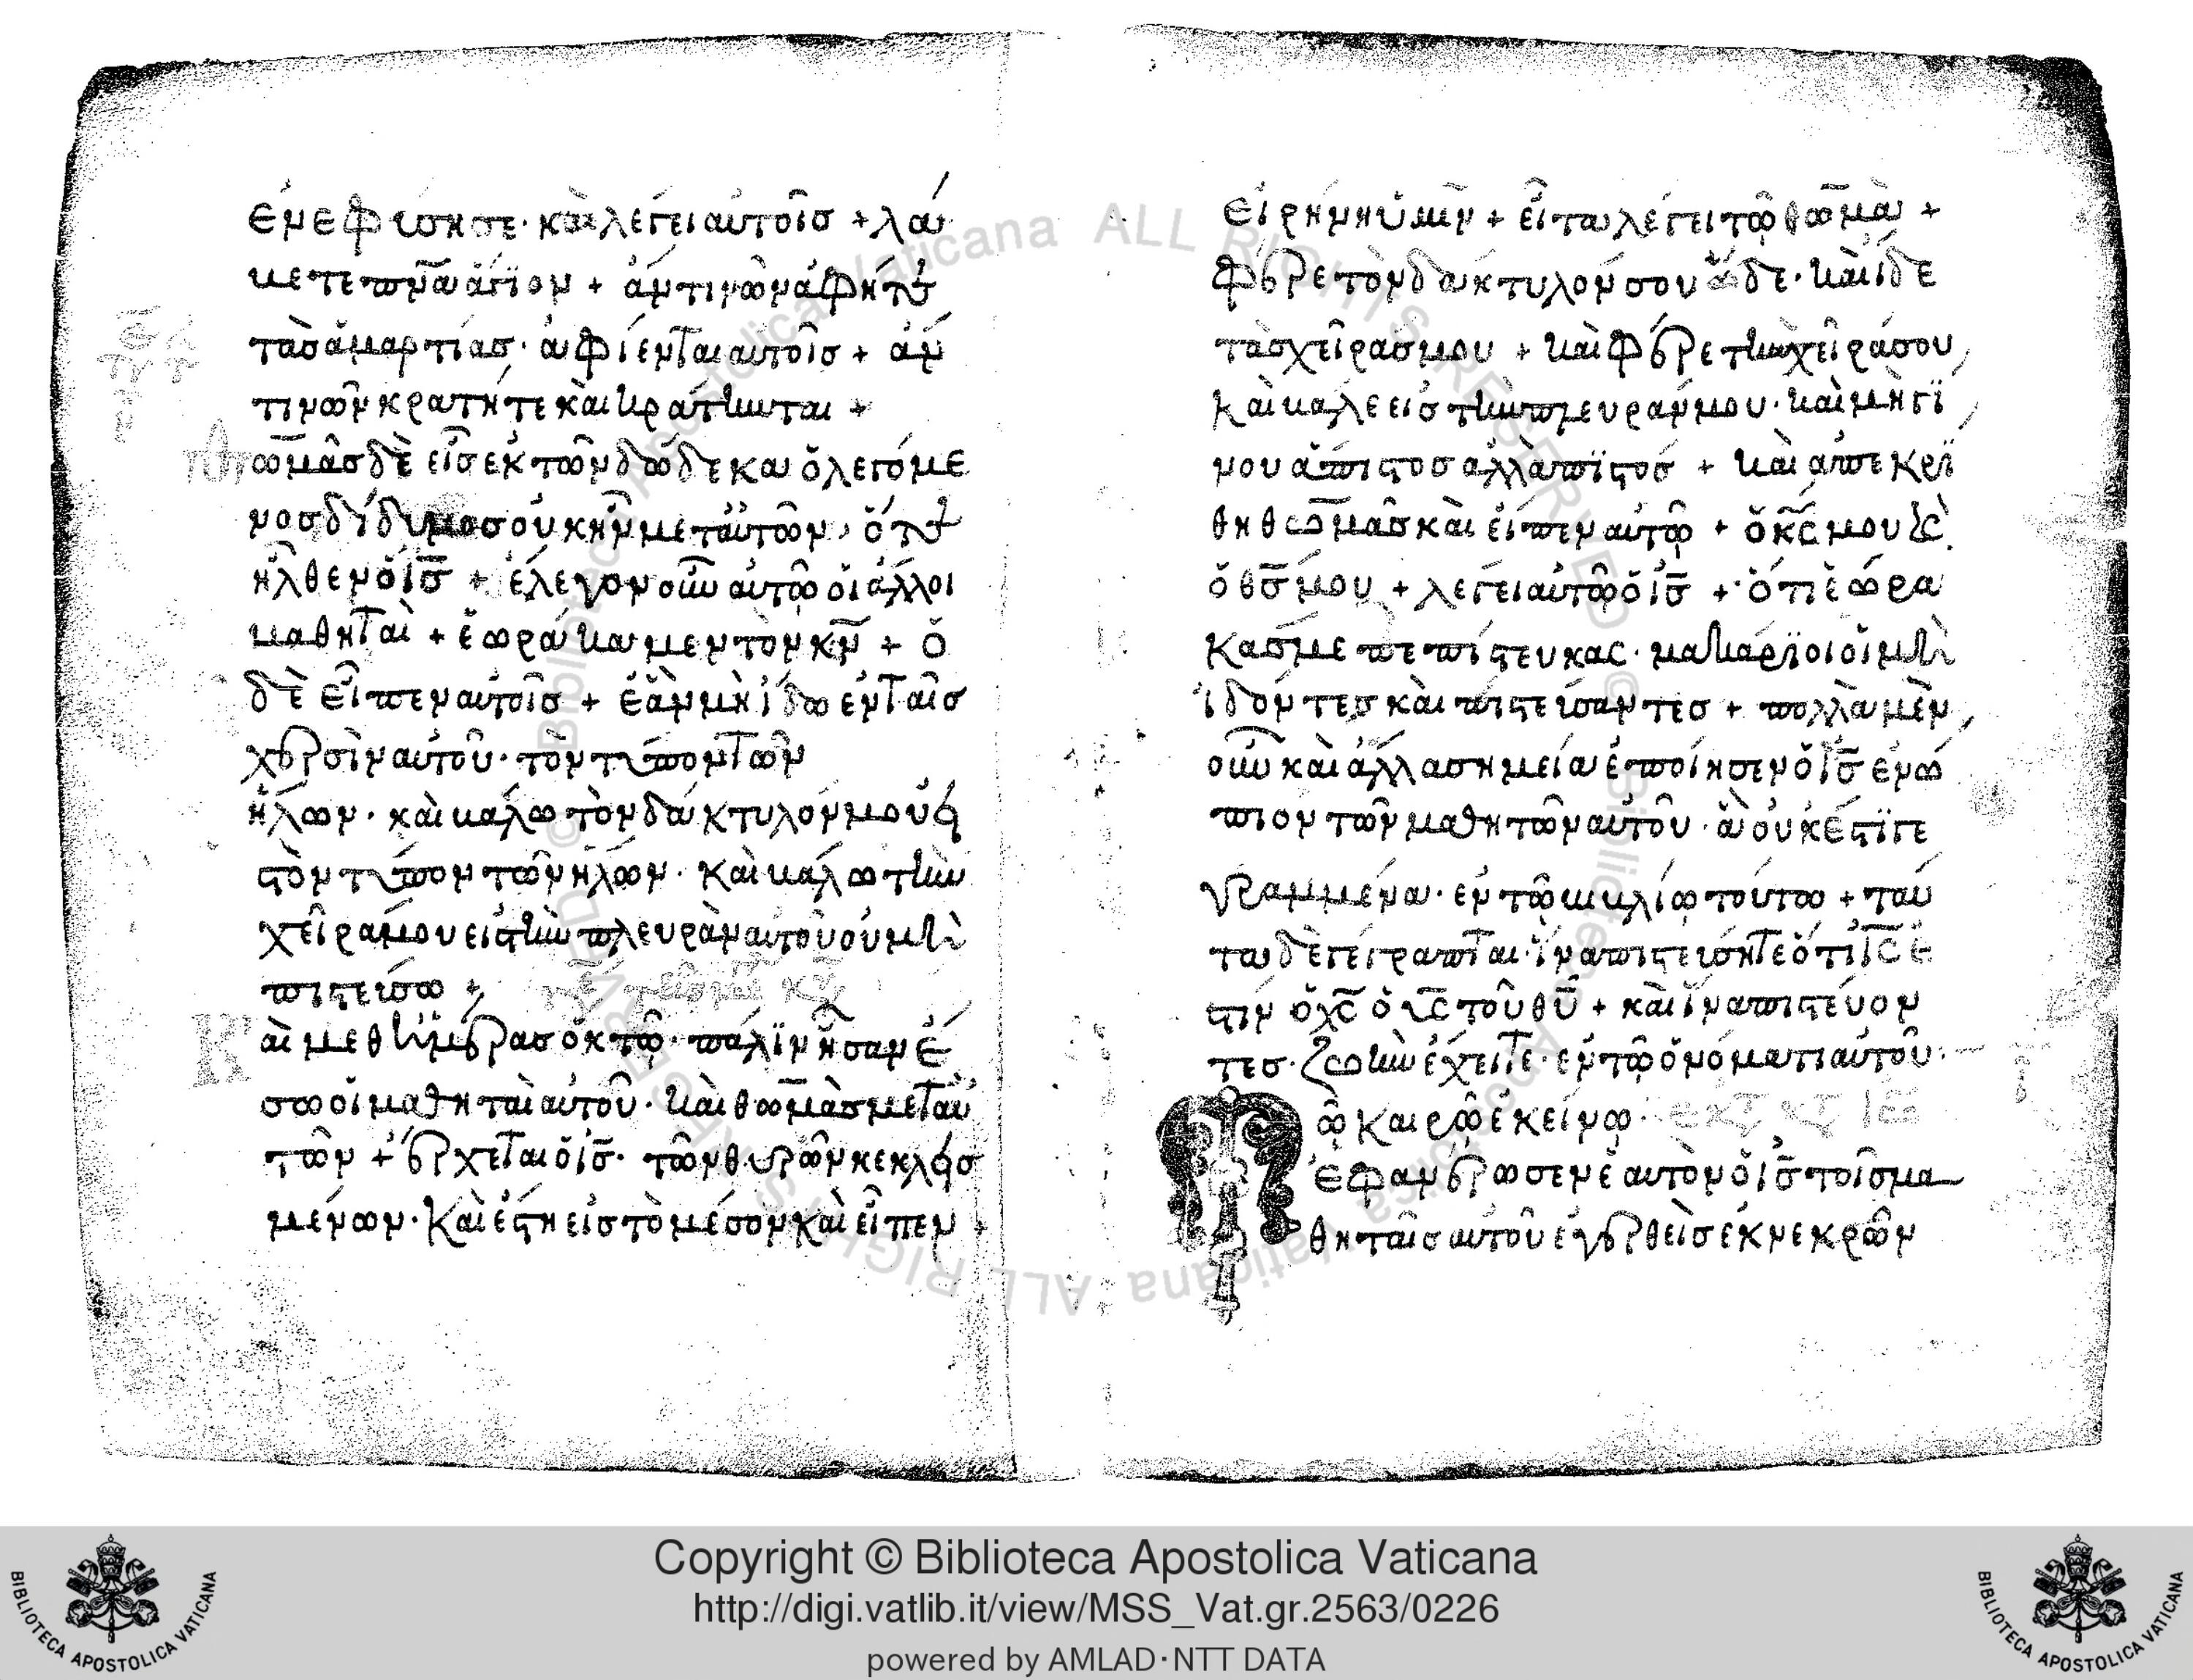 ἐνεφύσησε· καὶ λέγει αὐτοῖσ + λά
βετε πν̅α ἅγϊον + ἄν τινων ἀφῆτε
τὰσ ἁμαρτίασ· ἀφίενται αὐτοῖσ + ἄν
τινων κρατῆτε κεκράτηνται +
ωμᾶσ δὲ εἷσ ἐκ τῶν δώδεκα ὁ λεγόμε
νοσ δίδυμοσ οὐκ ἦν μετ αὐτῶν, ὅτε
ἦλθεν ὁ ι̅σ̅ + ἔλεγον οὖν αὐτῶ οἱ ἄλλοι
μαθηταὶ + ἑωράκαμεν τὸν κ̅ν̅ + ὁ
δὲ εἶπεν αὐτοῖσ + ἐὰν μὴ ἴδω ἐν ταῖσ
χερσὶν αὐτοῦ· τὸν τύπον τῶν
ἥλων· καὶ βάλω τὸν δάκτυλόν μου εἰσ
τὸν τύπον τῶν ἥλων· καὶ βάλω τὴν
χεῖρα μου εἰσ τὴν πλευρὰν αὐτοῦ οὐ μὴ
πιστεύσω +
αὶ μεθ ἡμέρασ ὀκτῶ· πάλϊν ἦσαν ἔ
σω οἱ μαθηταὶ αὐτοῦ· καὶ θωμᾶσ μετ αὐ
τῶν + ἔρχεται ὁ ι̅σ̅· τῶν θυρῶν κεκλεισ
μένων· καὶ ἔστη εἰσ τὸ μέσον καὶ εἶπεν
εἰρήνη ὑμῖν + εἶτα λέγει τῶ θωμᾶ +
φέρε τὸν δάκτυλόν σου ὧδε· καὶ ἴδε
τὰσ χεῖράσ μου + καὶ φέρε τὴν χεῖρά σου
καὶ βάλε εἰσ τὴν πλευράν μου· καὶ μὴ γΐ
νου ἄπιστοσ ἀλλὰ πϊστόσ + καὶ ἀπεκρϊ
θη θωμᾶσ καὶ εἶπεν αὐτῶ + ὁ κ̅σ̅ μου καὶ
ὁ θ̅σ̅ μου + λέγει αὐτῶ ὁ ι̅σ̅ + ὅτι ἑώρα
κασ με πεπίστευκας· μακάρϊοι οἱ μὴ
ἰδόντεσ καὶ πιστεύσαντεσ + πολλὰ μὲν
οὖν καὶ ἄλλα σημεῖα ἐποίησεν ὁ ι̅σ̅ ἐνώ
πιον τῶν μαθητῶν αὐτοῦ· ἃ οὐκ ἔστϊ γε
γραμμένα· ἐν τῶ βιβλίω τούτω + ταῦ
τα δὲ γέγραπται· ἵνα πιστεύσητε ὅτι ι̅σ̅ ἐ
στιν ὁ χ̅σ̅ ὁ υ̅σ̅ τοῦ θ̅υ̅ + καὶ ἵνα πιστεύον
τεσ· ζωὴν ἔχειτε· ἐν τῶ ὀνόματι αὐτοῦ·
ῶ καιρῶ ἐκείνω·
ἐφανέρωσεν ἑαυτὸν ὁ ι̅σ̅ τοῖσ μα
θηταῖσ αὐτοῦ ἐγερθεὶσ ἐκ νεκρῶν
Copyright © Biblioteca Apostolica Vaticana
http://digi.vatlib.it/view/MSS_Vat.gr.2563/0226
powered by AMLAD·NTT DATA
BIBLIOTECA APOSTOLICA VATICANA
BIBLIOTECA APOSTOLICA VATICANA